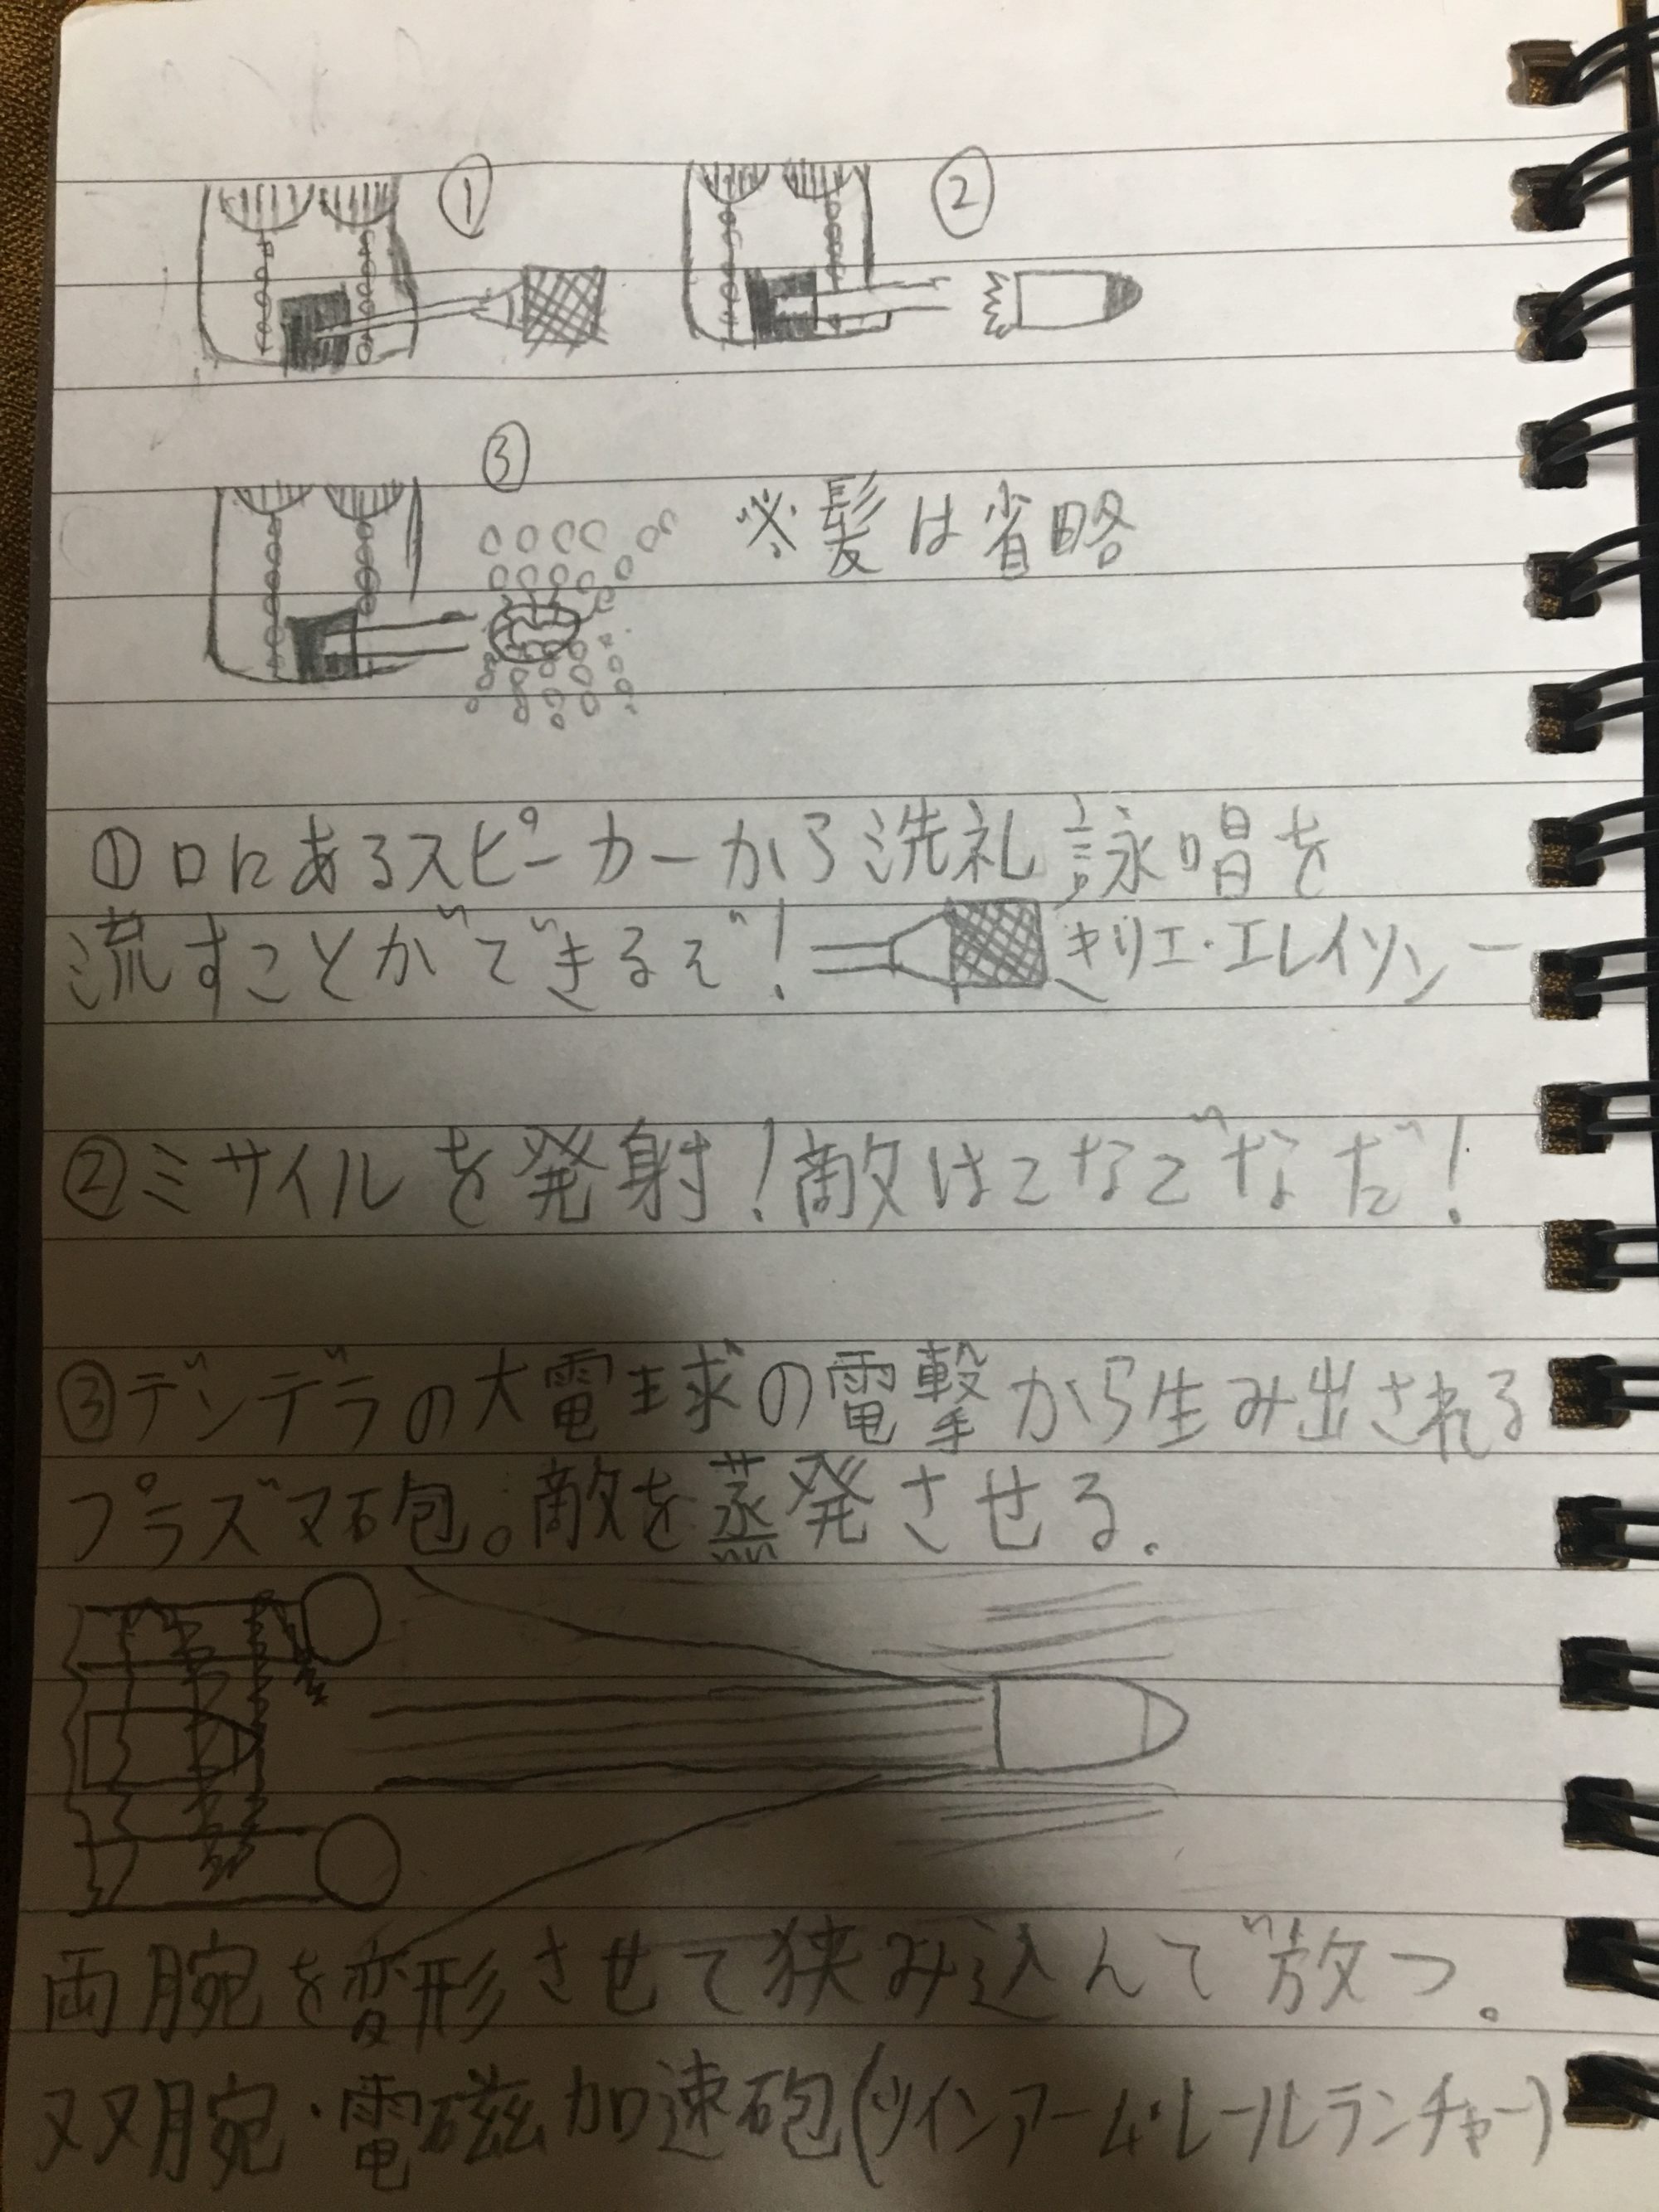 ①
②
③
※髪は省略
①口にあるスピーカーから洗礼詠唱を
流すことができるぞ!
キリエ・エレイソンー
②ミサイルを発射!敵はこなごなだ!
③デンデラの大電球の電撃から生み出される
プラズマ砲。敵を蒸発させる.
両腕を変形させて狭み込んで放つ。
双腕・電磁加速砲(ツインアーム・レールランチャー)